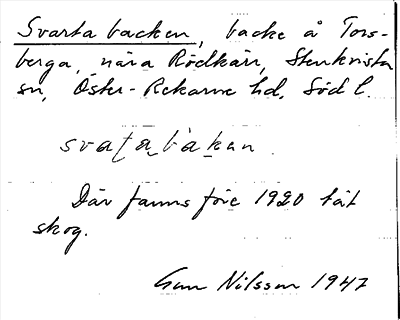 Svarta backen, backe å Tors-
berga, nära Rödkärr, Stenkvista
sn, Öster-Rekarne hd. Söd l.
svaṭa bakan
Där fanns före 1920 tät
skog.
Gun Nilsson 1947